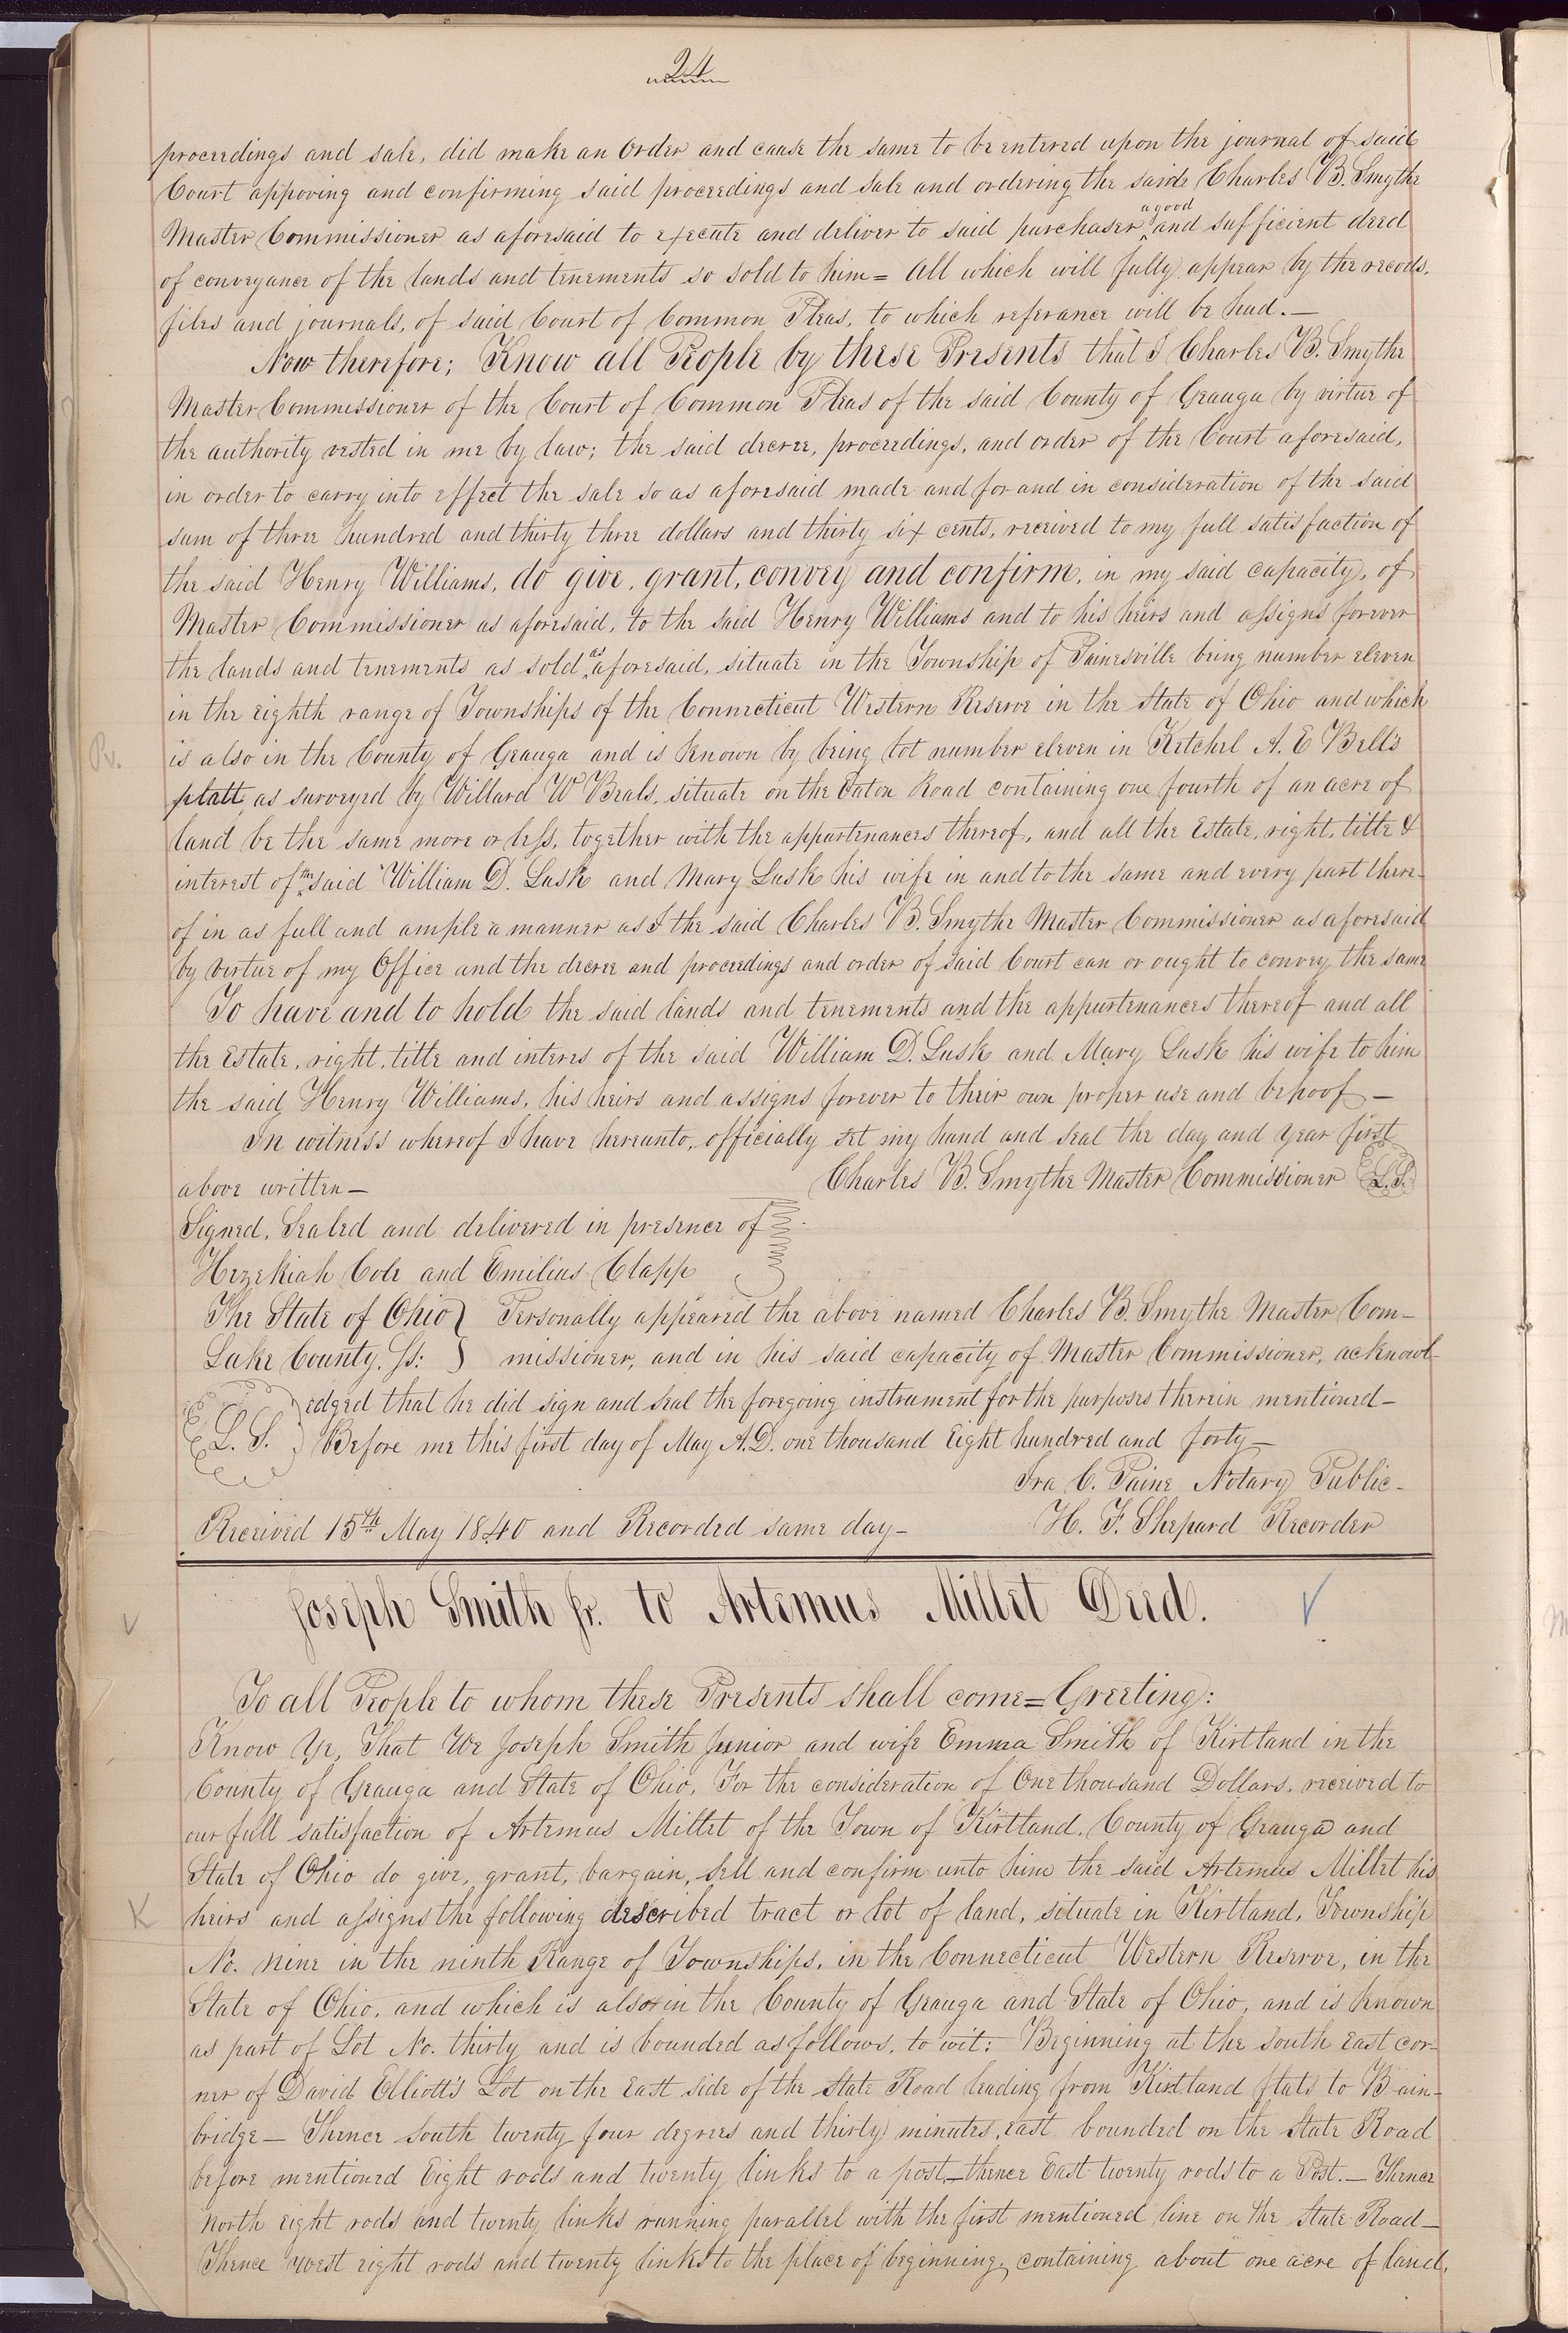 24
proceedings and sale, did make an Order and cause the same to be entered upon the journal of said
Court appoving and confirming said proceedings and sale and ordering the said Charles B. Smythe
Master Commissioner as aforesaid to execute and deliver to said purchaser a good and sufficient deed
of conveyance of the lands and tenements so sold to him = All which will fully appear by the records,
files and journals, of said Court of Common Pleas, to which referance will be had. —
Now therefore; Know all People by these Presents that I Charles B. Smythe
Master Commissioner of the Court of Common Pleas of the said County of Geauga by virtue of
the authority vested in me by law; the said decree, proceedings, and order of the Court aforesaid,
in order to carry into effect the sale so as aforesaid made and for and in consideration of the said
sum of three hundred and thirty three dollars and thirty six cents, received to my full satisfaction of
the said Henry Williams, do give, grant, convey and confirm, in my said capacity, of
Master Commissioner as aforesaid, to the said Henry Williams and to his heirs and assigns forever
the lands and tenements as sold as aforesaid, situate in the Township of Painesville being number eleven
in the eighth range of Townships of the Connecticut Western Reserve in the State of Ohio and which
is also in the County of Geauga and is known by being lot number eleven in Ketchel A. E Bell's
platt, as surveyed by Willard W Beals, situate on the Eaton Road containing one fourth of an acre of
land be the same more or less, together with the appurtenances thereof, and all the Estate, right, title &
interest of the said William D. Lusk and Mary Lusk his wife in and to the same and every part there-
of in as full and ample a manner as I the said Charles B. Smythe Master Commissioner as aforesaid
by virtue of my Office and the decree and proceedings and order of said Court can or ought to convey the same
To have and to hold the said lands and tenements and the appurtenances thereof and all
the Estate, right, title and interes of the said William D. Lusk and Mary Lusk his wife to him
the said Henry Williams, his heirs and assigns forever to their own proper use and behoof —
In witness whereof I have hereunto, officially set my hand and seal the day and year first
above written — Charles B. Smythe Master Commissioner L.S.
Signed, Sealed and delivered in presence of
Hezekiah Cole and Emilius Clapp
The State of Ohio } Personally appeared the above named Charles B. Smythe Master Com-
Lake County. Ss: } missioner, and in his said capacity of Master Commissioner, acknowl-
edged that he did sign and seal the foregoing instrument for the purposes therein mentioned —
L. S. Before me this first day of May A.D. one thousand Eight hundred and forty —
Ira C. Paine Notary Public -
Received 15th May 1840 and Recorded same day — H. F. Shepard Recorder
Joseph Smith Jr. to Artemus Millet Deed.
To all People to whom these Presents shall come = Greeting:
Know Ye, That We Joseph Smith Junior and wife Emma Smith of Kirtland in the
County of Geauga and State of Ohio, For the consideration of One thousand Dollars, received to
our full satisfaction of Artemus Millet of the Town of Kirtland, County of Geauga and
State of Ohio do give, grant, bargain, sell and confirm unto him the said Artemus Millet his
heirs and assigns the following described tract or lot of land, situate in Kirtland, Township
No. nine in the ninth Range of Townships, in the Connecticut Western Reserve, in the
State of Ohio, and which is also in the County of Geauga and State of Ohio, and is known
as part of Lot No. thirty and is bounded as follows, to wit: Beginning at the South East cor-
ner of David Elliott's Lot on the East side of the State Road leading from Kirtland flats to Bain-
bridge — Thence South twenty four degrees and thirty minutes, East bounded on the State Road
before mentioned Eight rods and twenty links to a post — thence East twenty rods to a Post. — Thence
North eight rods and twenty links running parallel with the first mentioned line on the State Road —
Thence west eight rods and twenty links to the place of beginning, containing about one acre of land,
Rv.
K